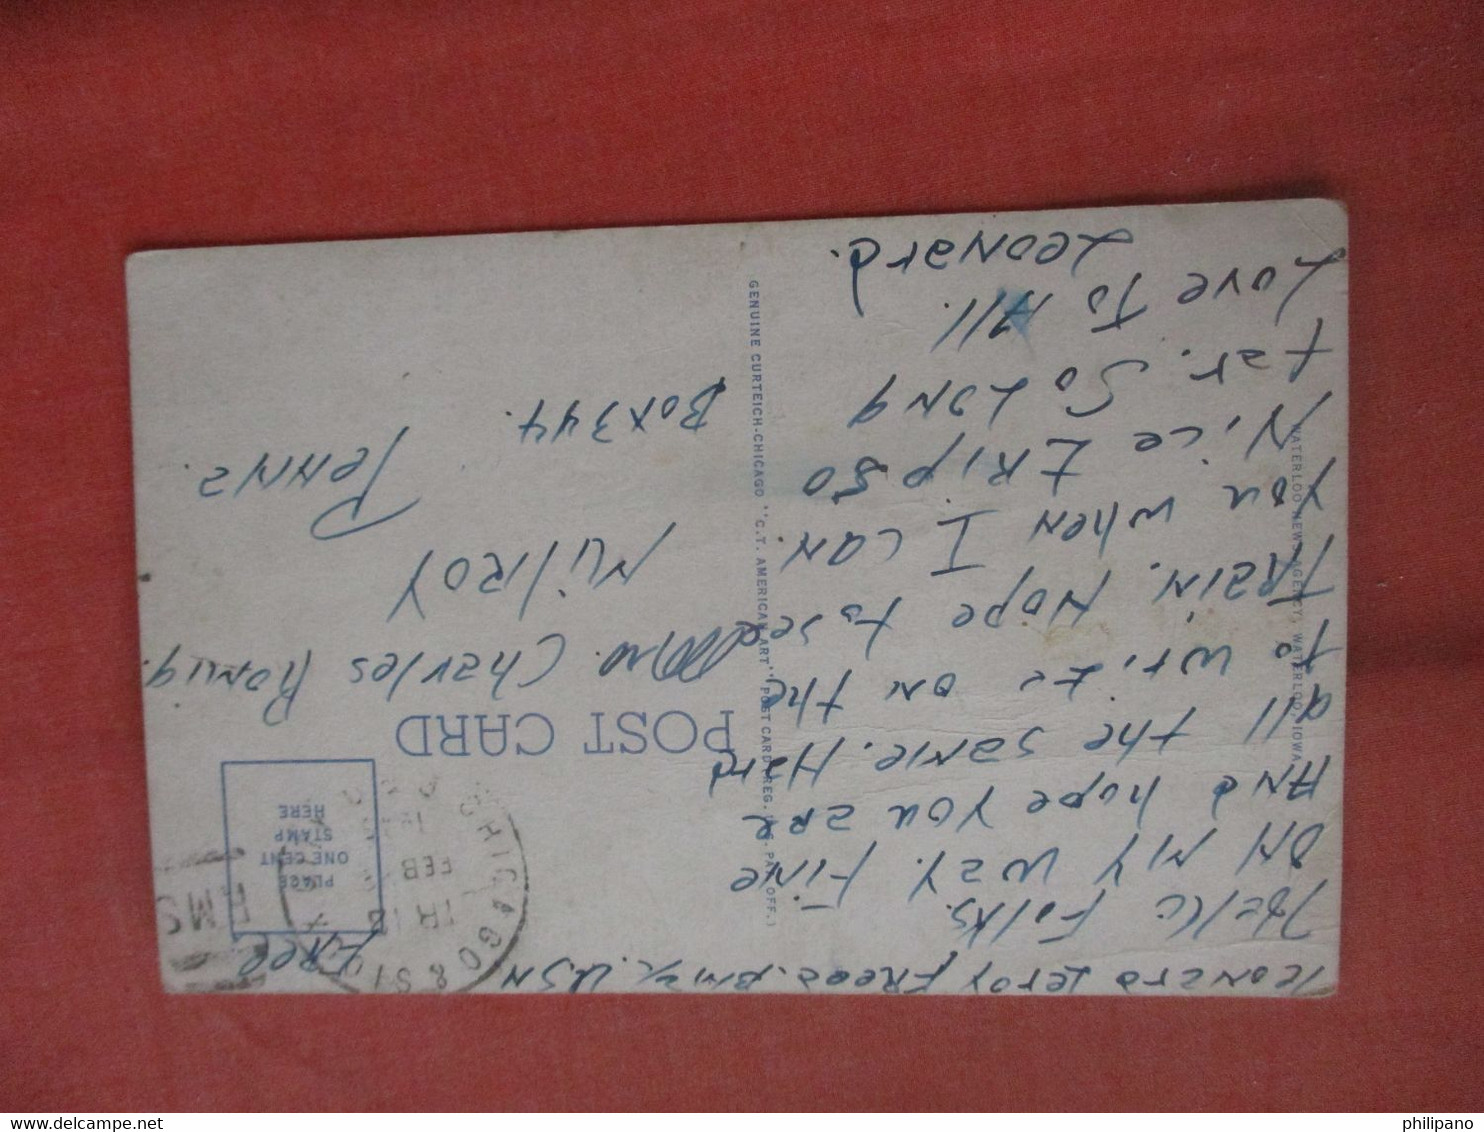 Leonard Leroy Freed. BM2/c. USN
Free
Hello Folks.
ON MY WAY. FINE
AND hope You are
all the same. Hard
To write on the
TRAIN. Hope to see
You when I can.
Nice trip so
far. So Long
Love To All.
Leonard.
WATERLOO NEWS AGENCY, WATERLOO, IOWA
GENUINE CURTEICH-CHICAGO "C.T. AMERICAN ART" POST CARD (REG. U.S. PAT. OFF.)
CHICAGO & ST
TR 18
FEB
RMS
PLACE
ONE CENT
STAMP
HERE
POST CARD
Mrs. Charles Romig.
Milroy
Penna.
Box 344.
philipano